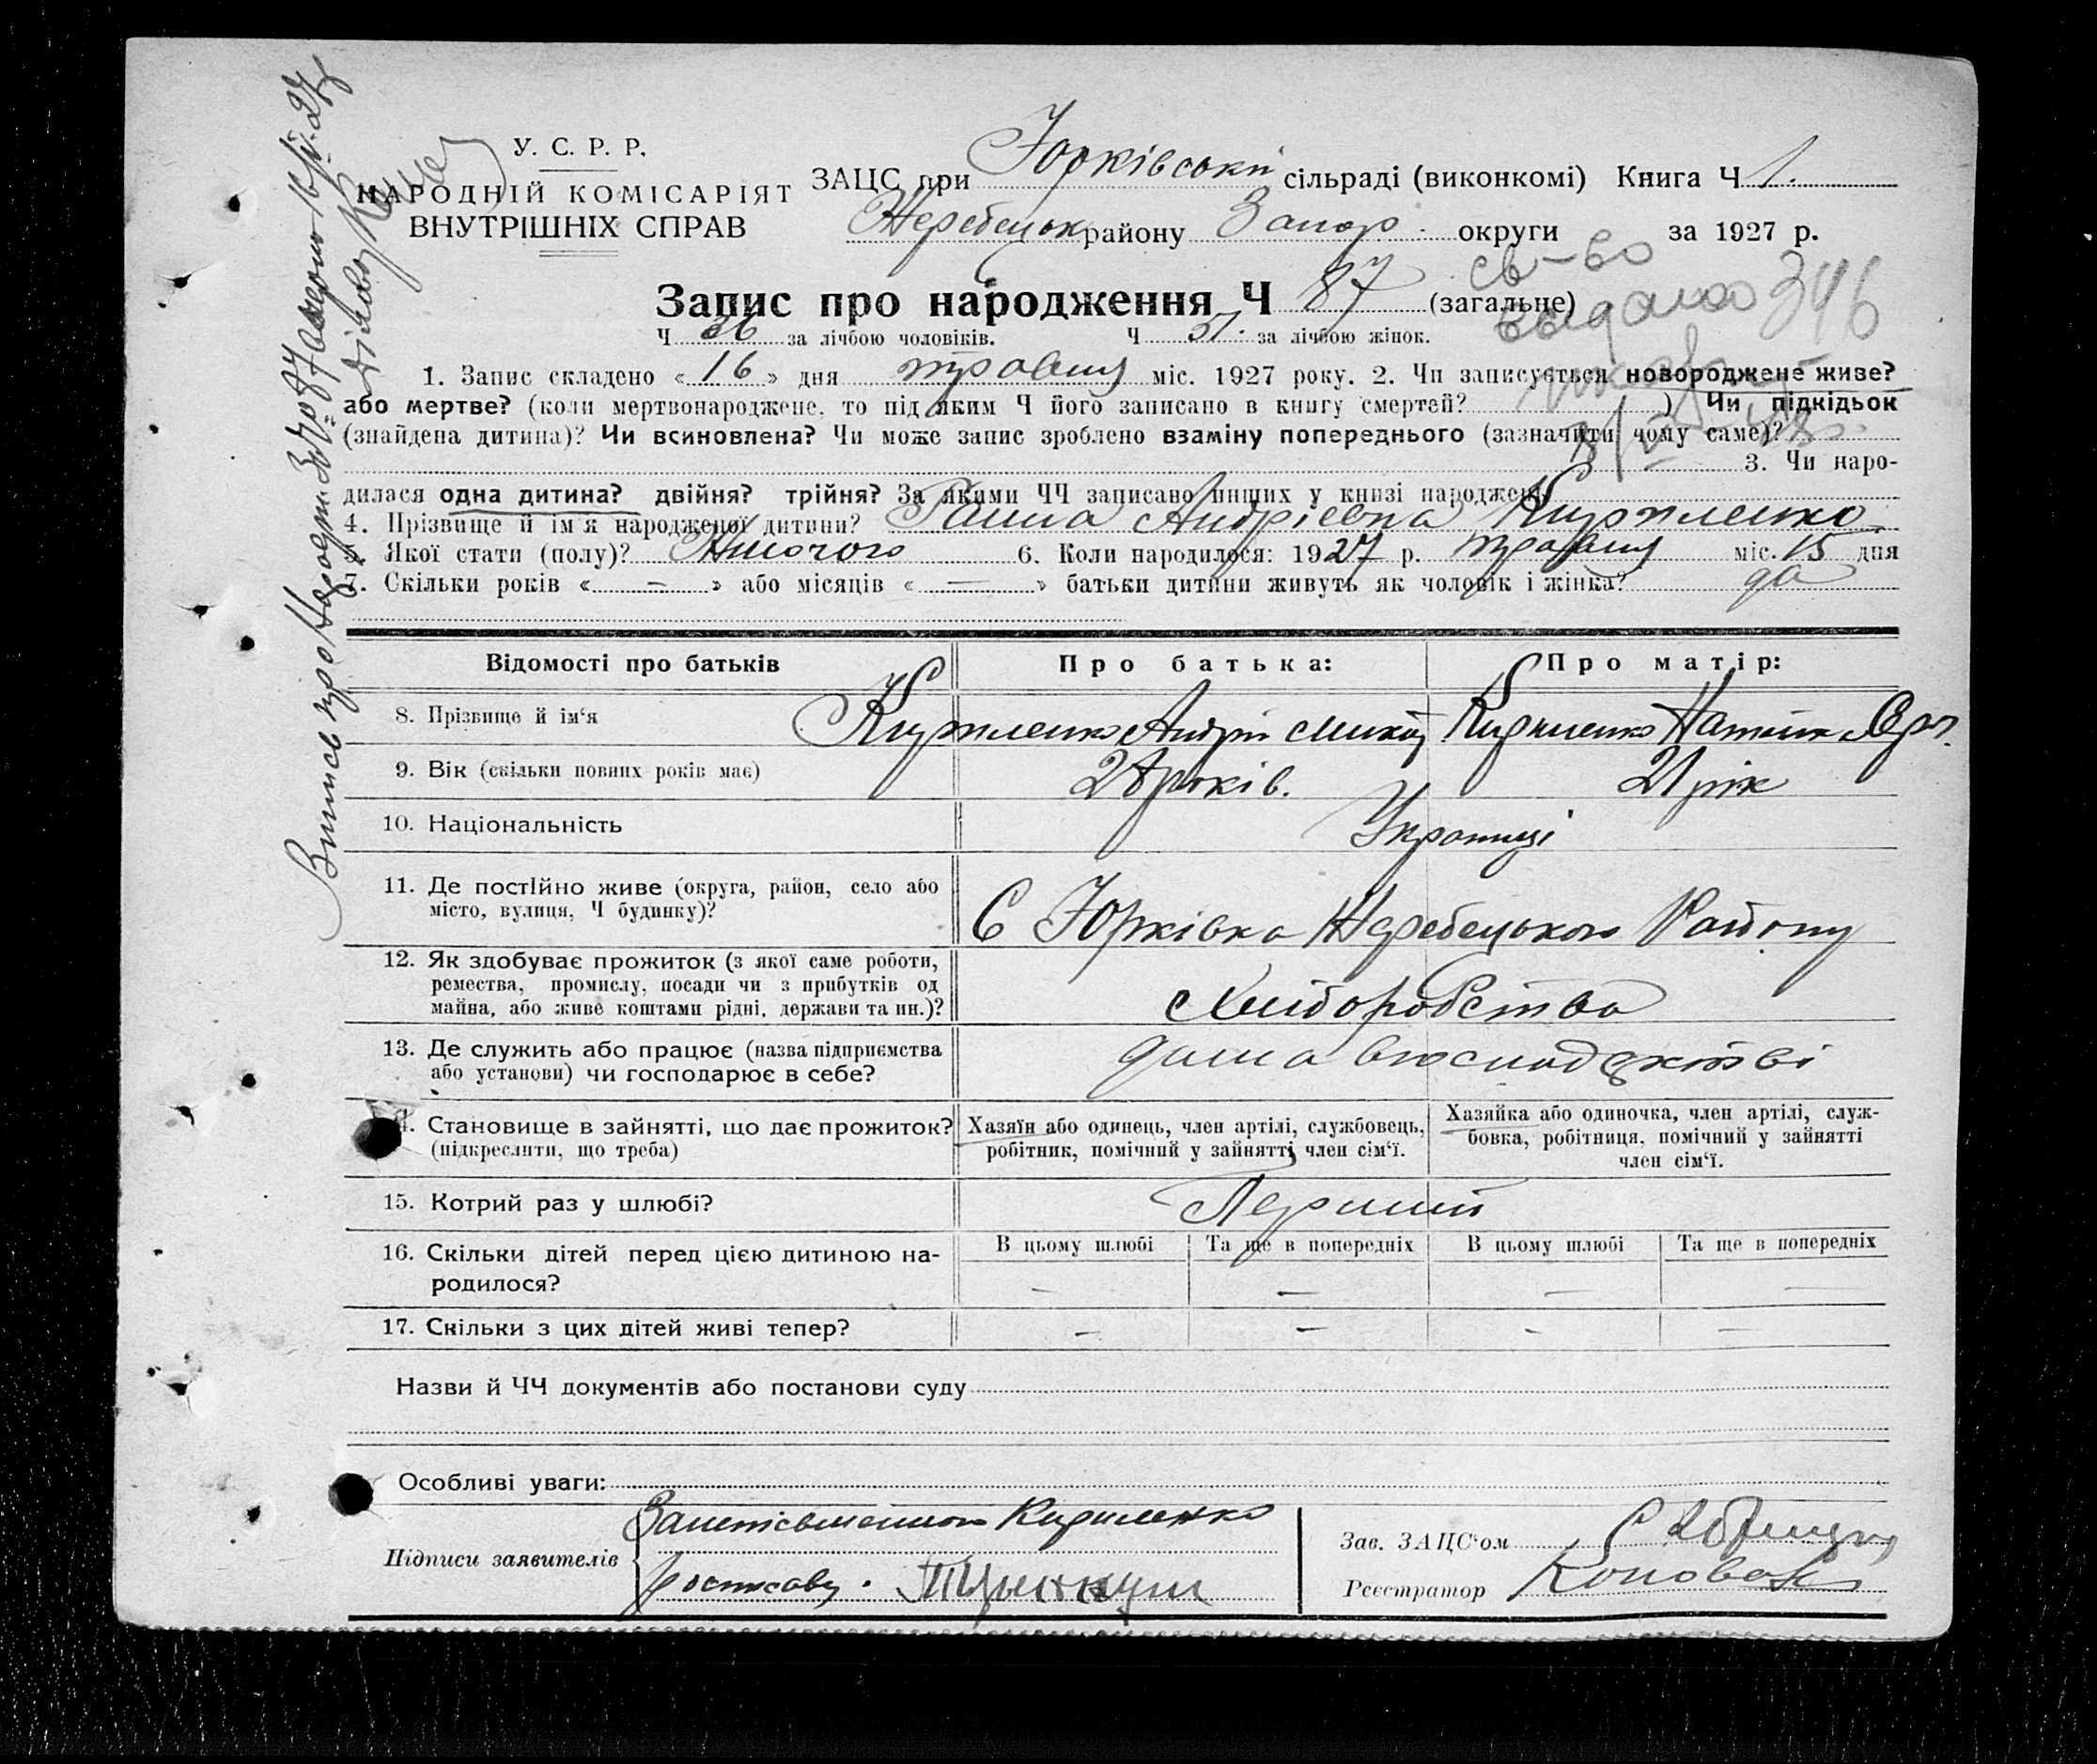 У. С. Р. Р.
НАРОДНІЙ КОМІСАРІЯТ
ВНУТРІШНІХ СПРАВ
ЗАЦС при Юрківській сільраді (виконкомі) Книга Ч 1.
Жеребецьк району Запор. округи за 1927 р.
св-во
Запис про народження Ч 87 (загальне)
выдано 346
Ч 36 за лічбою чоловіків. Ч 51. за лічбою жінок.
1. Запис складено «16» дня травня міс. 1927 року. 2. Чи записується новороджене живе?
або мертве? (коли мертвонароджене, то під яким Ч його записано в книгу смертей? ) Чи підкідьок
(знайдена дитина)? Чи всиновлена? Чи може запис зроблено взаміну попереднього (зазначити чому саме)?
3. Чи наро-
дилася одна дитина? двійня? трійня? За якими ЧЧ записано инших у книзі народжень
4. Прізвище й ім'я народженої дитини? Ганна Андріевна Кириленко
5. Якої стати (полу)? Жіночого 6. Коли народилося: 1927 р. травня міс. 15 дня
7. Скільки років « — » або місяців « — » батьки дитини живуть як чоловік і жінка? да
Відомості про батьків Про батька: Про матір:
8. Прізвище й ім'я Кириленко Андрій Микит Кириленко
9. Вік (скільки повних років має) 28 років. 21 рік
10. Національність Українці
11. Де постійно живе (округа, район, село або
місто, вулиця, Ч будинку)?
С Юрківка Жеребецького Району
12. Як здобуває прожиток (з якої саме роботи,
ремества, промислу, посади чи з прибутків од
майна, або живе коштами рідні, держави та ин.)?
Хліборобство
13. Де служить або працює (назва підприємства
або установи) чи господарює в себе?
дома
14. Становище в зайнятті, що дає прожиток?
(підкреслити, що треба)
Хазяїн або одинець, член артілі, службовець,
робітник, помічний у зайнятті член сім'ї.
Хазяйка або одиночка, член артілі, служ-
бовка, робітниця, помічний у зайнятті
член сім'ї.
15. Котрий раз у шлюбі? Перший
16. Скільки дітей перед цією дитиною на-
родилося?
В цьому шлюбі Та ще в попередніх В цьому шлюбі Та ще в попередніх
— — — —
17. Скільки з цих дітей живі тепер? — — — —
Назви й ЧЧ документів або постанови суду
Особливі уваги:
Підписи заявителів
Кириленко
Зав. ЗАЦС'ом
Реєстратор Коновал